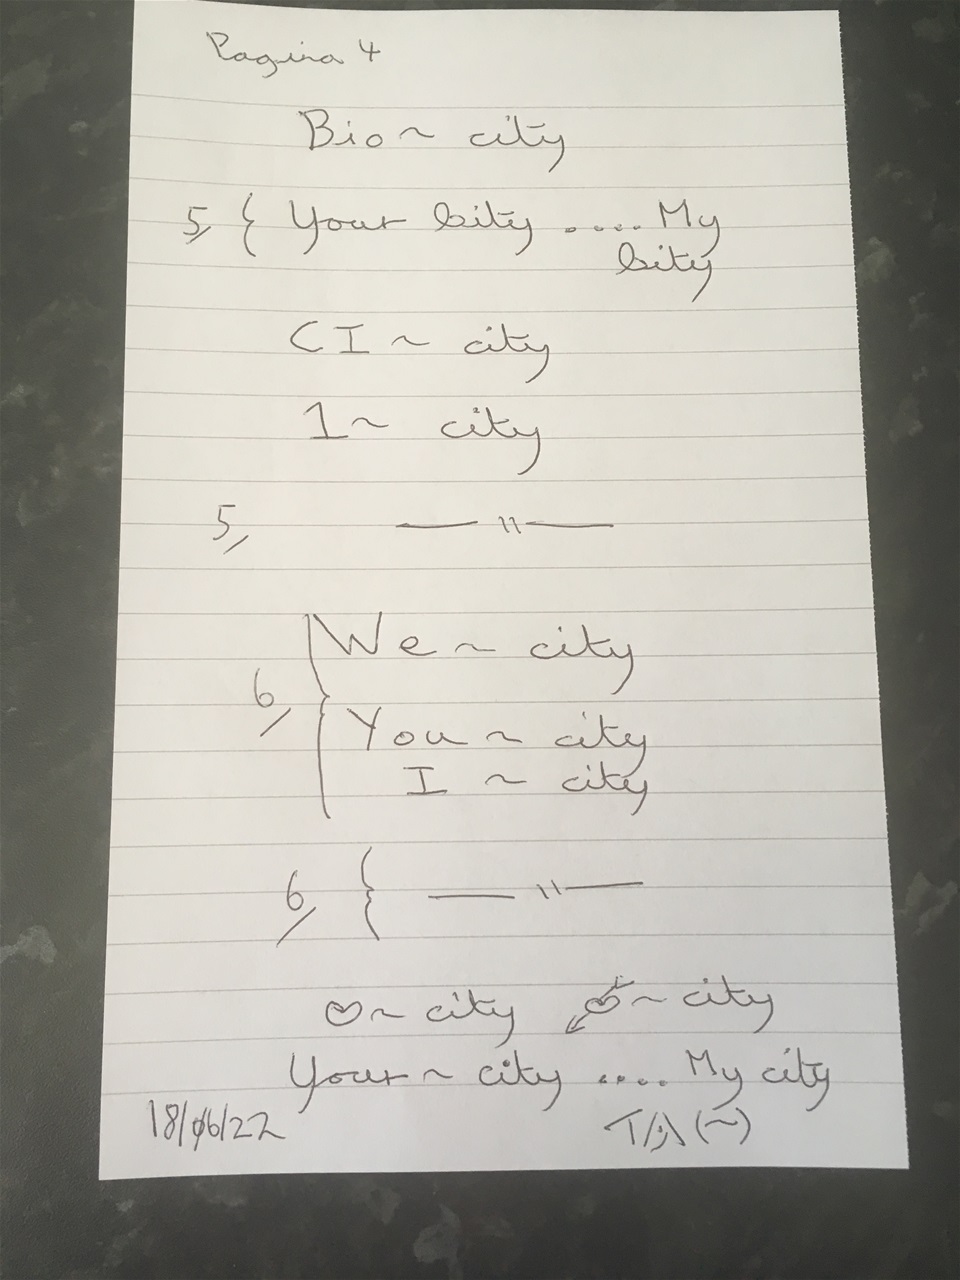 Pagina 4
Bio ~ city
5, { Your bity .... My
bity
CI ~ city
1 ~ city
5, — " —
We ~ city
6, { You ~ city
I ~ city
6, { — " —
♡ ~ city ~ city
Your ~ city .... My city
18/06/22